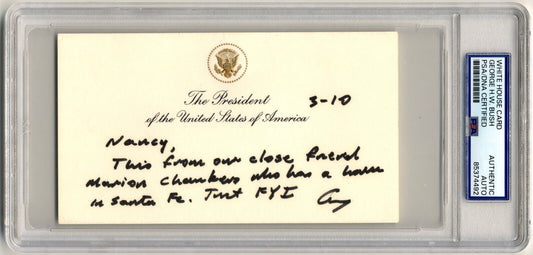 The President
of the United States of America
3-10
Nancy,
This from our close friend
Marion Chambers who has a home
in Santa Fe. Just FYI
WHITE HOUSE CARD
GEORGE H.W. BUSH
PSA/DNA CERTIFIED
PSA
AUTHENTIC
AUTO
85374492